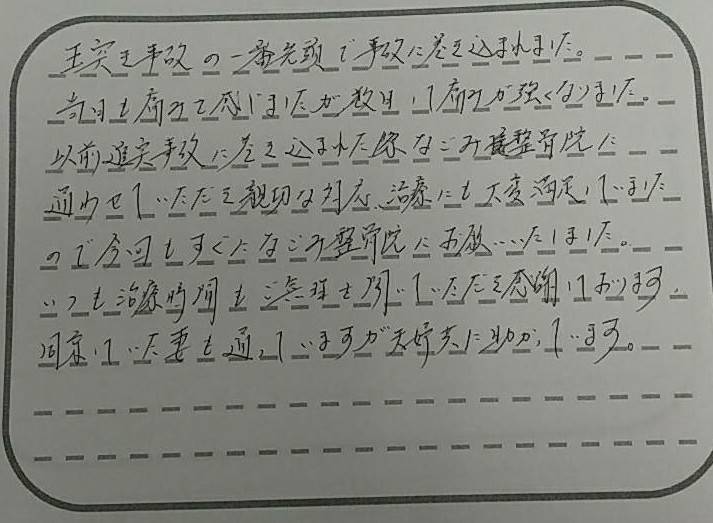 玉突き事故の一番先頭で事故に巻き込まれました。
当日も痛みを感じましたが数日して痛みが強くなりました。
以前追突事故に巻き込まれた際なごみ整骨院に
通わせていただき親切な対応、治療にも大変満足していました
ので今回もすぐになごみ整骨院にお願いいたしました。
いつも治療時間もご無理を聞いていただき感謝しております。
同乗していた妻も通っていますが夫婦共に助かっています。